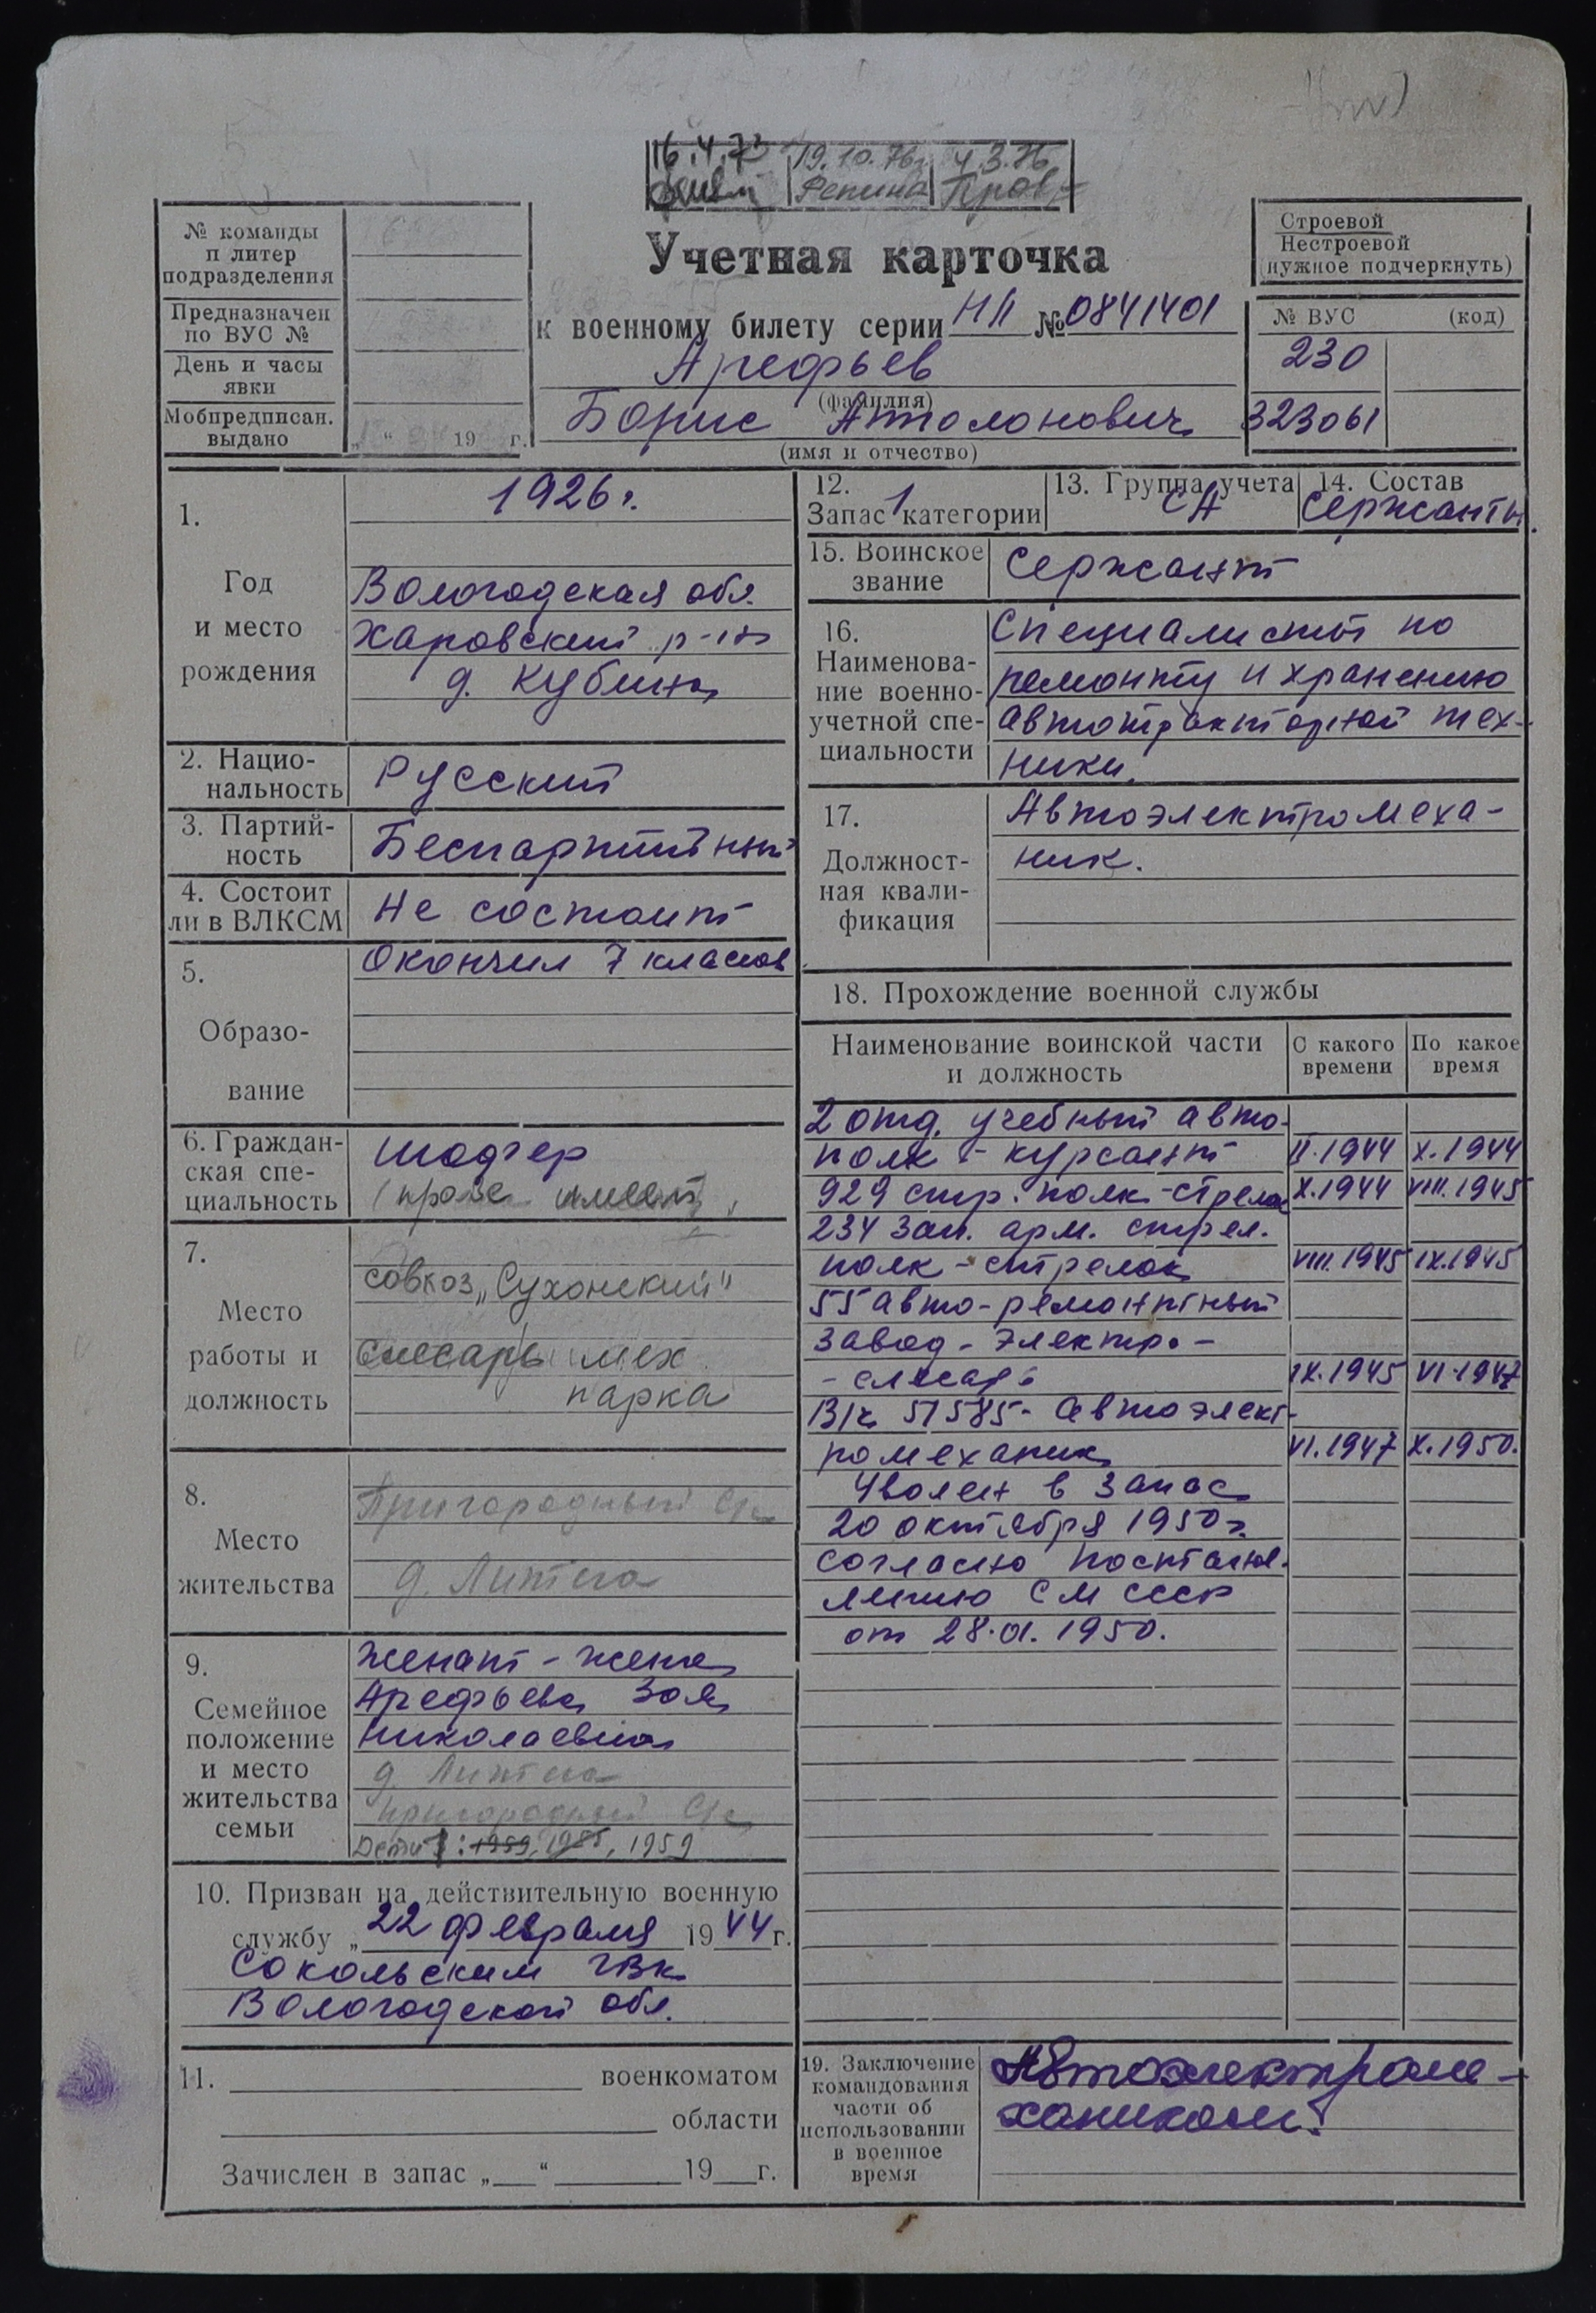 16.4.73
19.10.76г.
4.3.76
Репина
Пров
№ команды
п литер
подразделения
Предназначен
по ВУС №
День и часы
явки
Мобпредписан.
выдано
„ “ 19 г.
Учетная карточка
к военному билету серии НЛ № 0841401
Арефьев
(фамилия)
Борис Аполонович
(имя и отчество)
Строевой
Нестроевой
(нужное подчеркнуть)
№ ВУС (код)
230
323061
1.
Год
и место
рождения
1926 г.
Вологодская обл.
Харовский р-н
д. Кубина
2. Нацио-
нальность
Русский
3. Партий-
ность
Беспартийный
4. Состоит
ли в ВЛКСМ
Не состоит
5.
Образо-
вание
Окончил 7 классов
6. Граждан-
ская спе-
циальность
Шофер
(права имеет)
7.
Место
работы и
должность
совхоз „Сухонский"
слесарь мех
парка
8.
Место
жительства
Пригородный с/с
д. Литега
9.
Семейное
положение
и место
жительства
семьи
Женат - жена
Арефьева Зоя
Николаевна
д. Литега
Пригородный с/с
Дети: 1959, 1985, 1959
10. Призван на действительную военную
службу „ 22 февраля 1944 г.
Сокольским ГВК
Вологодской обл.
11. военкоматом
области
Зачислен в запас „ “ 19 г.
12.
Запас 1 категории
13. Группа учета
СА
14. Состав
Сержанты
15. Воинское
звание
Сержант
16.
Наименова-
ние военно-
учетной спе-
циальности
Специалисты по
ремонту и хранению
автотракторной тех-
ники.
17.
Должност-
ная квали-
фикация
Автоэлектромеха-
ник.
18. Прохождение военной службы
Наименование воинской части
и должность
С какого
времени
По какое
время
2 отд. учебный авто-
полк - курсант II.1944 X.1944
929 стр. полк - стрелок X.1944 VIII.1945
234 зап. арм. стрел.
полк - стрелок VIII.1945 IX.1945
55 авто-ремонтный
завод - электро-
- слесарь IX.1945 VI.1947
В/ч 51585 - автоэлект-
ромеханик VI.1947 X.1950.
Уволен в запас
20 октября 1950 г.
согласно постанов-
лению СМ СССР
от 28.01.1950.
19. Заключение
командования
части об
использовании
в военное
время
Автоэлектроме-
хаником.